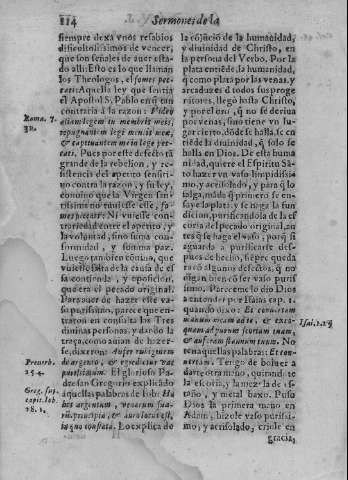 114
Sermones de la
siempre dexa vnos resabios
dificultosissimos de vencer,
que son señales de auer esta-
do alli: Esto es lo que llaman
los Theologos, el fomes pec-
cati: Aquella ley que sentia
el Apostol S. Pablo era tan
contraria à la razon: Video
aliam legem in membris meis,
repugnantem legi mentis meæ,
& captiuantem me in lege pec-
cati. Pues por este defecto es
grande de la rebelion, y re-
sistencia del apetito sensiti-
uo contra la razon, y su ley,
conuino que la Virgen san-
tissima no tuuiesse este, fo-
mes peccati: Ni vuiesse con-
trariedad entre el apetito, y
la voluntad, sino suma con-
formidad, y summa paz.
Luego tambien côuino, que
vuiesse falta de la causa de es-
sa contienda, y oposicion,
que era el pecado original.
Para auer de hazer este va-
so purissimo, parece que en-
traron en consulta las Tres
diuinas personas, y dando la
traça, como auian de hazer-
se, dixeron: Aufer rubiginem
de argento, & egredietur vas
purissimum. El glorioso Pa-
dre san Gregorio explicado
aquellas palabras de Iob: Ha-
bet argentum, venarum sua-
rũ principia, & auro locus est,
in quo conflatur. Lo explica de
Roma. 7.
Prouerb.
25. 4.
Greg. sup.
capit. Iob
28. 1.
la cõjunciõ de la humanidad,
y diuinidad de Christo, en
la persona del Verbo. Por la
plata entiêde la humanidad,
q̃ como plata por las venas, y
arcaduzes d̃ todos sus proge-
nitores, llegó hasta Christo,
y por el oro, q̃ no se deriua
por venas, sino tiene vn lu-
gar cierto, dõde se halla, se en
tiẽde la diuinidad, q̃ solo se
halla en Dios. De esta huma
nidad, quiere el Espiritu Sã-
to hazer vn vaso limpidissi-
mo, y acrisolado, y para q̃ lo
salga, mãda q̃ primero se en-
saye la plata, y se haga la fun
dicion, purificandola de la es
coria del pecado original, an
tes q̃ se haga el vaso, porq̃ si
aguarda a purificarse des-
pues de hecho, siẽpre queda
raco algunos defectos, q̃ no
digan biẽ cõ ser vaso purissi
simo. Pareceme lo dio Dios
a entender por Isaias cap. 1.
quando dixo: Et conuertam
manum meam ad te, & exco-
quam ad purum scoriam tuam,
& auferam stannum tuum. No
ten aquellas palabras: Et con-
uertam. Tengo de boluer a
dar otra mano, quitandote
la escoria, y la mezcla de es-
taño, y metal baxo. Puso
Dios la primera mano en
Adam, hizole vaso purissi-
mo, y acrisolado, criole en
gracia,
Isai. 1. 25